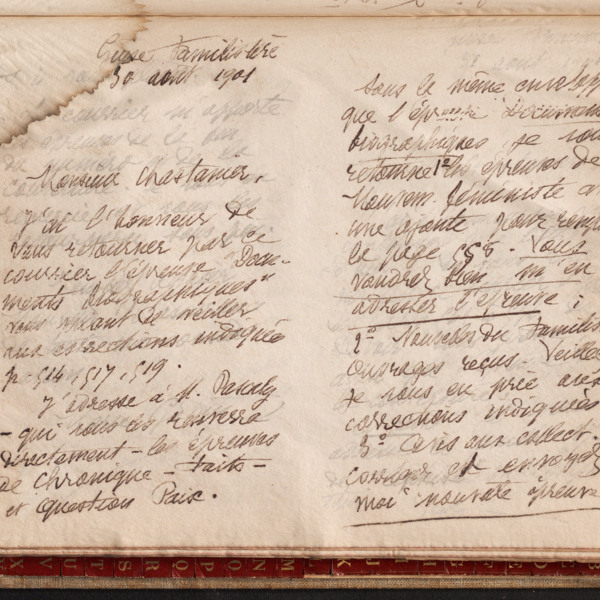 Guise Familistère
30 août 1901
Monsieur Chastanier,
J'ai l'honneur de
vous retourner par ce
courrier l'épreuve "Docu-
ments biographiques"
vous priant de veiller
aux corrections indiquées
p. 514, 517, 519.
J'adresse à M. Pascaly
- qui vous les renverra
directement - les épreuves
de chronique - Faits -
et Question Paix.
Sous la même envelopp
que l'épreuve Documen
biographiques, je vous
retourne 1º les épreuves de
Mouvem. féministe a
une ajoute pour remp
la page 558. Vous
voudrez bien m'en
adresser l'épreuve ;
2º Nouvelles du Familis
ouvrages reçus. Veille
je vous en prie aux
corrections indiquées
3º Avis aux collect.
corriger et envoyez
moi nouvelle épreuve
M N O P Q R S T U V X